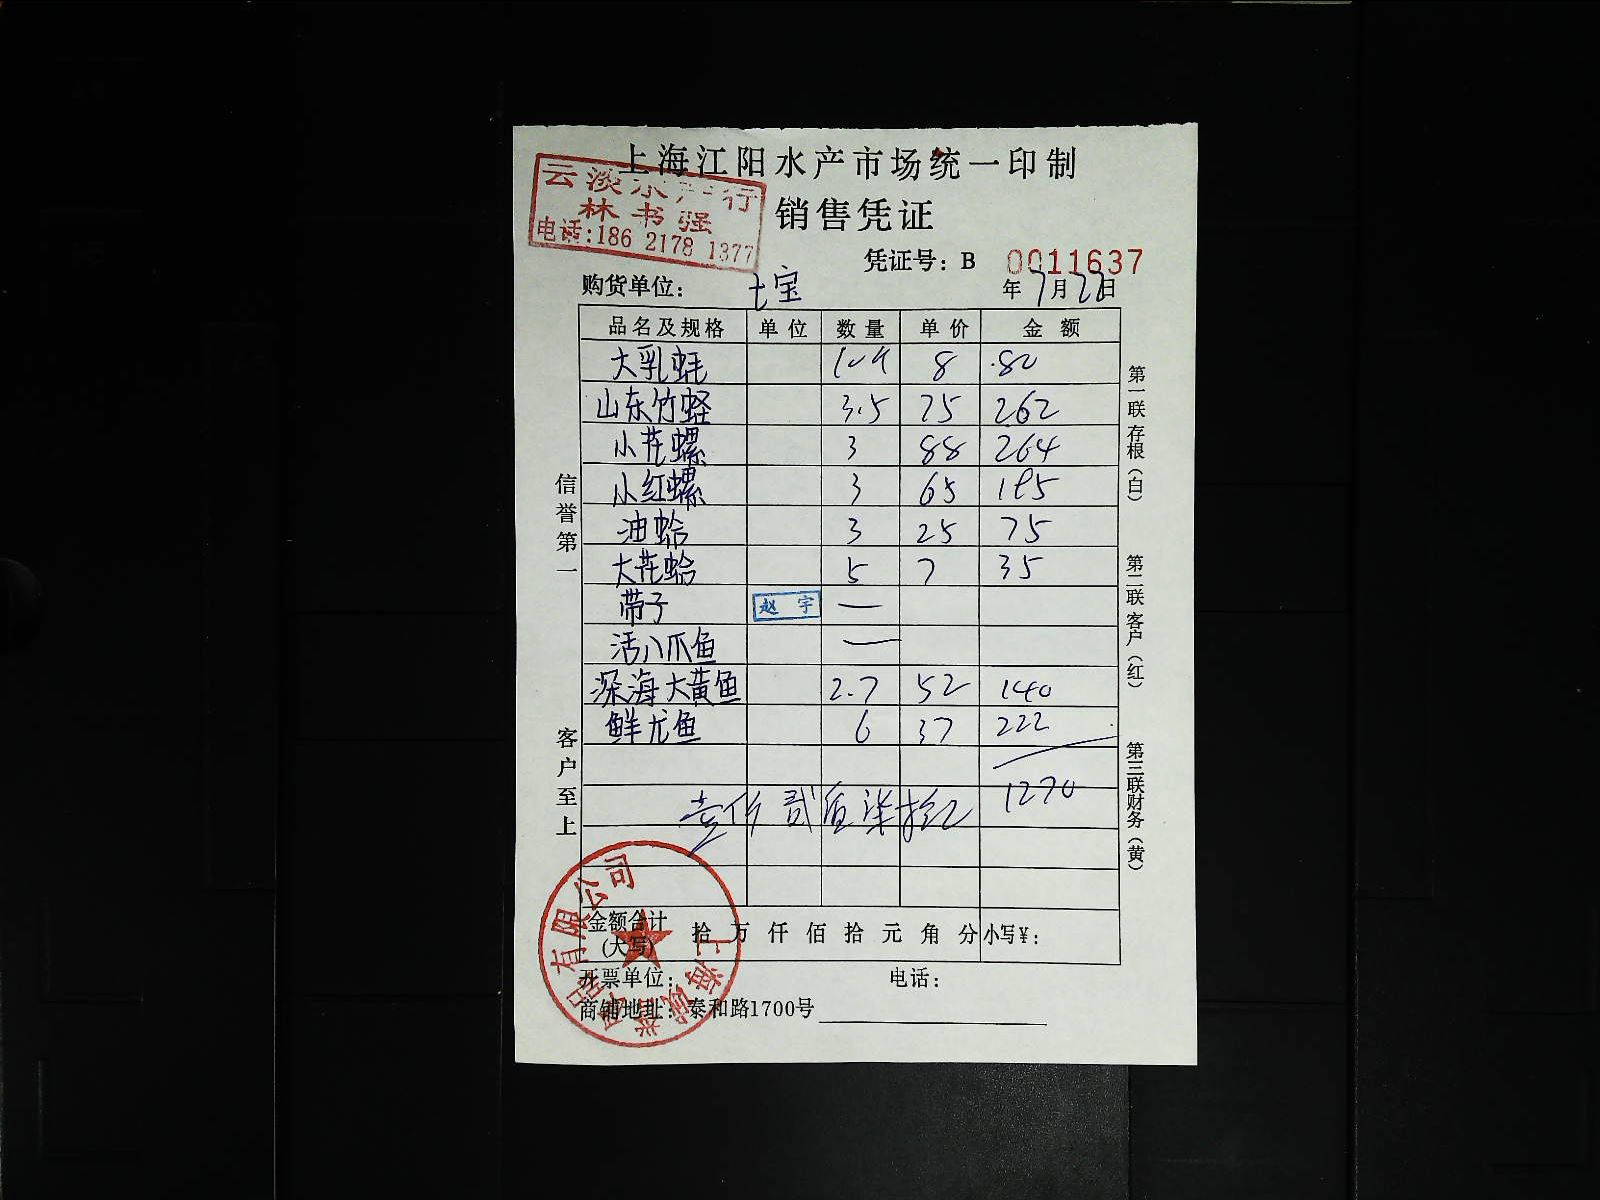 上海江阳水产市场统一印制
云淡水产行
林书强
电话:186 2178 1377
销售凭证
凭证号: B 0011637
购货单位: 七宝 年7月22日
品名及规格 单位 数量 单价 金额
大乳蚝 10个 8 80
山东竹蛏 3.5 75 262
小花螺 3 88 264
小红螺 3 65 195
油蛤 3 25 75
大花蛤 5 7 35
带子 赵宇 —
活八爪鱼 —
深海大黄鱼 2.7 52 140
鲜龙鱼 6 37 222
1270
壹仟贰佰柒拾元
信誉第一
客户至上
第一联存根(白)
第二联客户(红)
第三联财务(黄)
金额合计(大写) 拾万仟佰拾元角分 小写¥:
开票单位: 电话:
商铺地址: 泰和路1700号
上海
有限公司